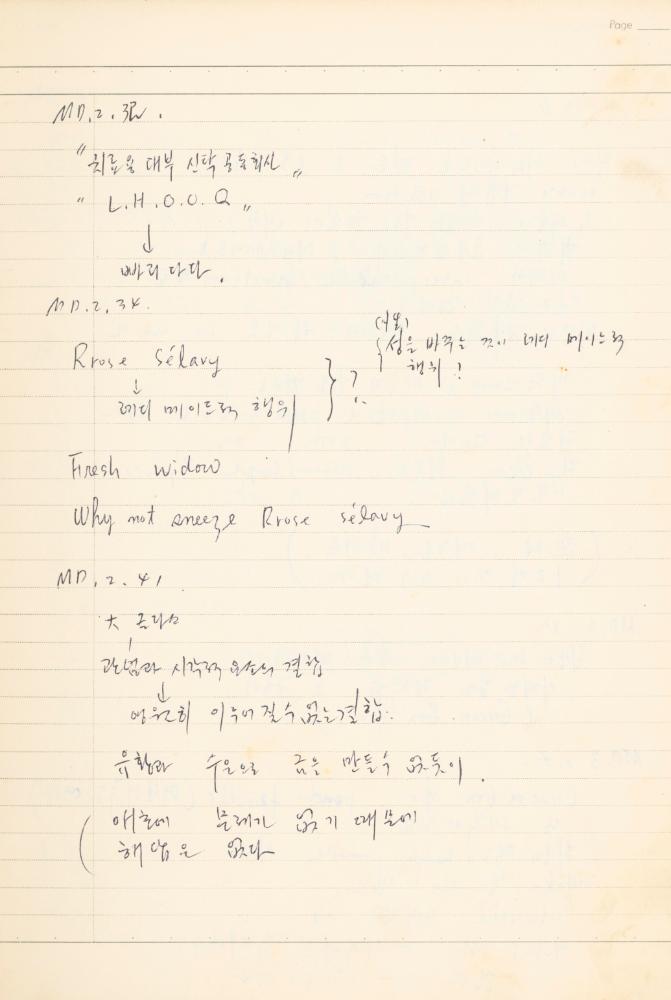 Page
MD. 2.
"치료용 대부 신탁 공동회사"
"L.H.O.O.Q"
↓
빠리 다다.
MD. 2. 34.
Rrose Sélavy
↓
레디 메이드적 행위
} ?
성을 바꾸는 것이 레디 메이드적
행위!
Fresh widow
Why not sneeze Rrose sélavy
MD. 2. 41
大 글라스
관념과 시각적 요소의 결합
↓
영원히 이루어 질수 없는 결합.
유황과 수은으로 금을 만들수 없듯이.
( 애초에 문제가 없기 때문에
해답은 없다